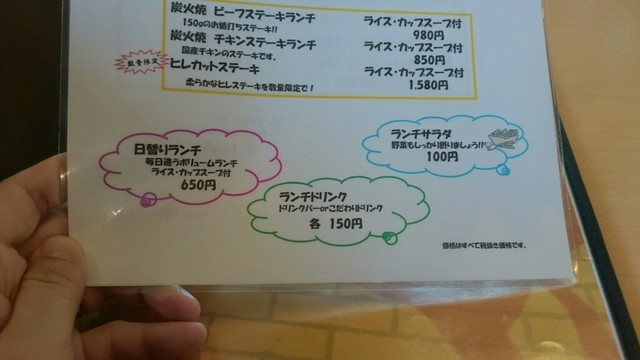 炭火焼 ビーフステーキランチ ライス・カップスープ付
150gのお値打ちステーキ!! 980円
炭火焼 チキンステーキランチ ライス・カップスープ付
国産チキンのステーキです。 850円
数量限定 ヒレカットステーキ ライス・カップスープ付
柔らかなヒレステーキを数量限定で! 1.580円
日替りランチ
毎日違うボリュームランチ
ライス・カップスープ付
650円
ランチサラダ
野菜もしっかり摂りましょう!!
100円
ランチドリンク
ドリンクバーorこだわりドリンク
各 150円
価格はすべて税抜き価格です。